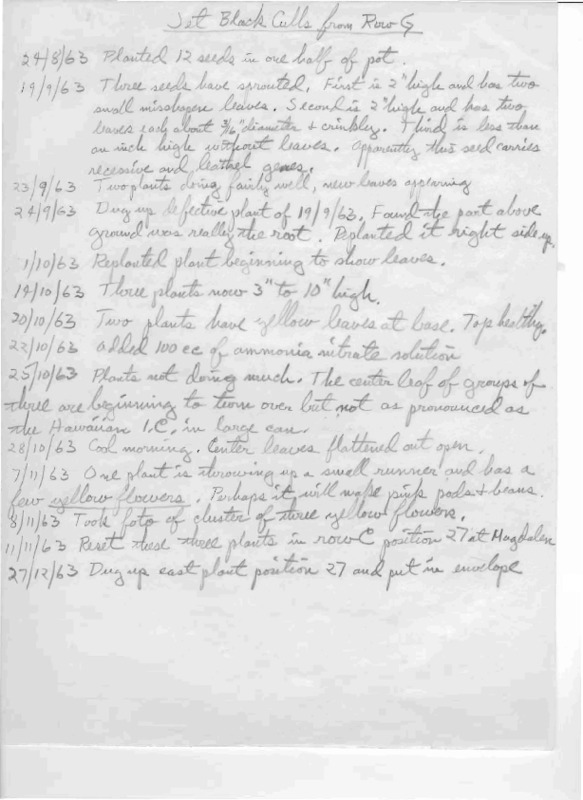 Jet Black Culls from Row G
24/8/63 Planted 12 seeds in one half of pot.
19/9/63 Three seeds have sprouted. First is 2" high and has two
small misshapen leaves. Second is 2" high and has two
leaves each about 3/16" diameter & crinkly. Third is less than
an inch high without leaves. Apparently this seed carries
recessive and leathel genes.
23/9/63 Two plants doing fairly well, new leaves appearing
24/9/63 Dug up defective plant of 19/9/63. Found the part above
ground was really the root. Replanted it right side up.
1/10/63 Replanted plant beginning to show leaves.
19/10/63 Three plants now 3" to 10" high.
20/10/63 Two plants have yellow leaves at base. Tops healthy.
22/10/63 added 100 cc of ammonia nitrate solution
25/10/63 Plants not doing much. The center leaf of groups of
three are beginning to turn over but not as pronounced as
the Hawaiian I.C. in large can.
28/10/63 Cool morning. Center leaves flattened out open.
7/11/63 One plant is throwing up a small runner and has a
few yellow flowers. Perhaps it will make pink pods & beans.
8/11/63 Took foto of cluster of three yellow flowers.
11/11/63 Reset these three plants in row C position 27 at Magdalen
27/12/63 Dug up east plant position 27 and put in envelope